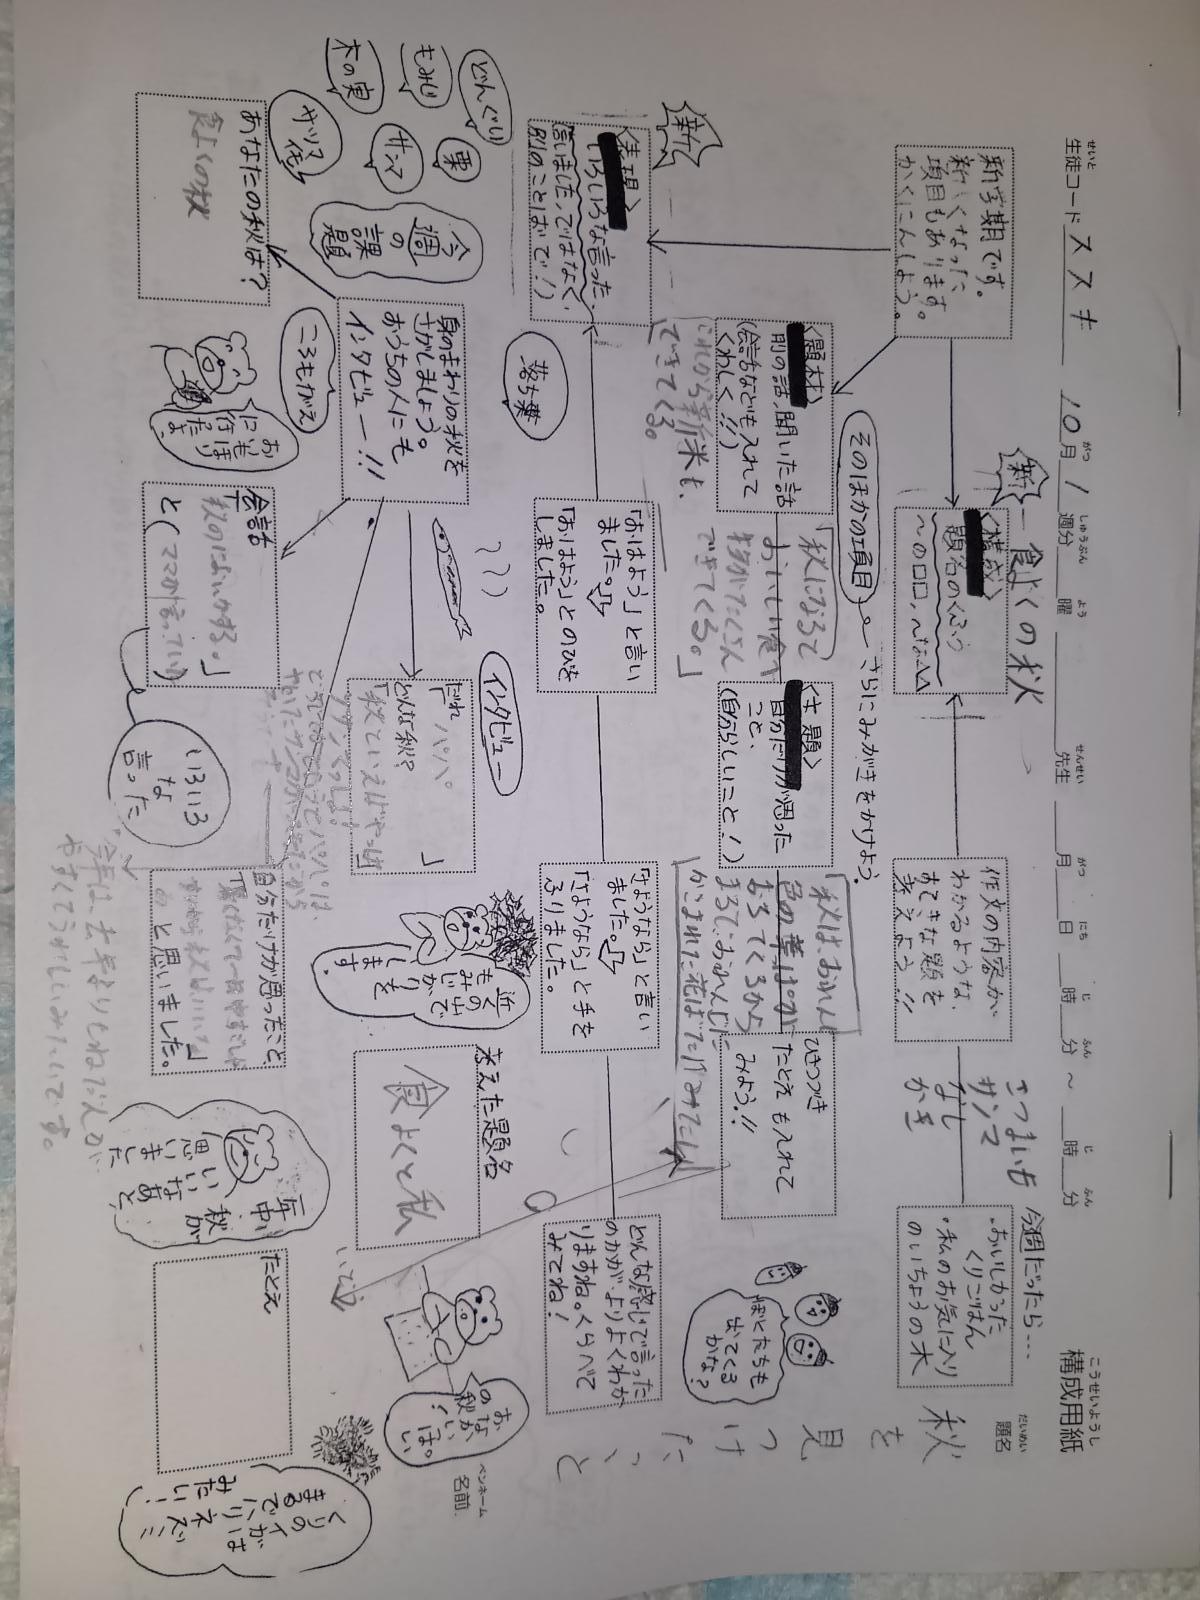 構成用紙
こうせいようし
生徒コード ススキ 10月1週分 曜 先生 月 日 時 分 ～ 時 分
題名
だいめい
秋を見つけたっと
ペンネーム
名前
新学期です。
新しくなった
項目もあります。
かくにんしよう。
新
食よくの秋
〈構成〉
題名のくふう
～の□□、～な△△
作文の内容が、
わかるような、
すてきな題を
考えよう!!
さつまいも
サンマ
なし
かき
今週だったら…
・おいしかった
くりごはん
・私のお気に入り
のいちょうの木
そのほかの項目
さらにみがきをかけよう。
〈題材〉
前の話、聞いた話
(会話なども入れて
くわしく!!)
「秋になるって
おいしい食べ
物がたくさん
できてくる。」
これから新米も、
できてくる。
〈主題〉
自分だけが思った
こと、
(自分らしいこと!)
「秋はおれんじ
色の葉ばが
おちてくるから
まるで、おれんじに
かこまれた花ばたけみたい」
ひきつづき
たとえも入れて
みよう!!
ぼくたちも
出てくる
かな?
新
〈表現〉
いろいろな言った
(言いました。ではなく、
別のことばで!)
「おはよう」と言い
ました。
「おはよう」とのびを
しました。
「さようなら」と言い
ました。
「さようなら」と手を
ふりました。
どんな感じで言った
のかが、よりよくわか
りますね。くらべて
みてね!
どんぐり
もみじ
木の実
栗
サンマ
サツマ
イモ
落ち葉
ころもがえ
インタビュー
今週
の
課題
身のまわりの秋を
さがしましょう。
おうちの人にも
インタビュー!!
あなたの秋は?
食よくの秋
だれ パパ。
どんな秋?
「秋ていえばやっぱ
」
近くの山で
もみじがりを
します。
考えた題名
食よくと私
おなか
の秋が
いっぱい。
会話
秋のにおいがする。」
と(ママが言っていた)
いろいろ
な
言った
自分だけが思ったこと
と思いました。
今年は、去年よりもねだんが
やすくてうれしいみたいです。
毎年
秋が
いいなあと、
思いました
たとえ
くりのイガは
まるでハリネズミ
みたい!